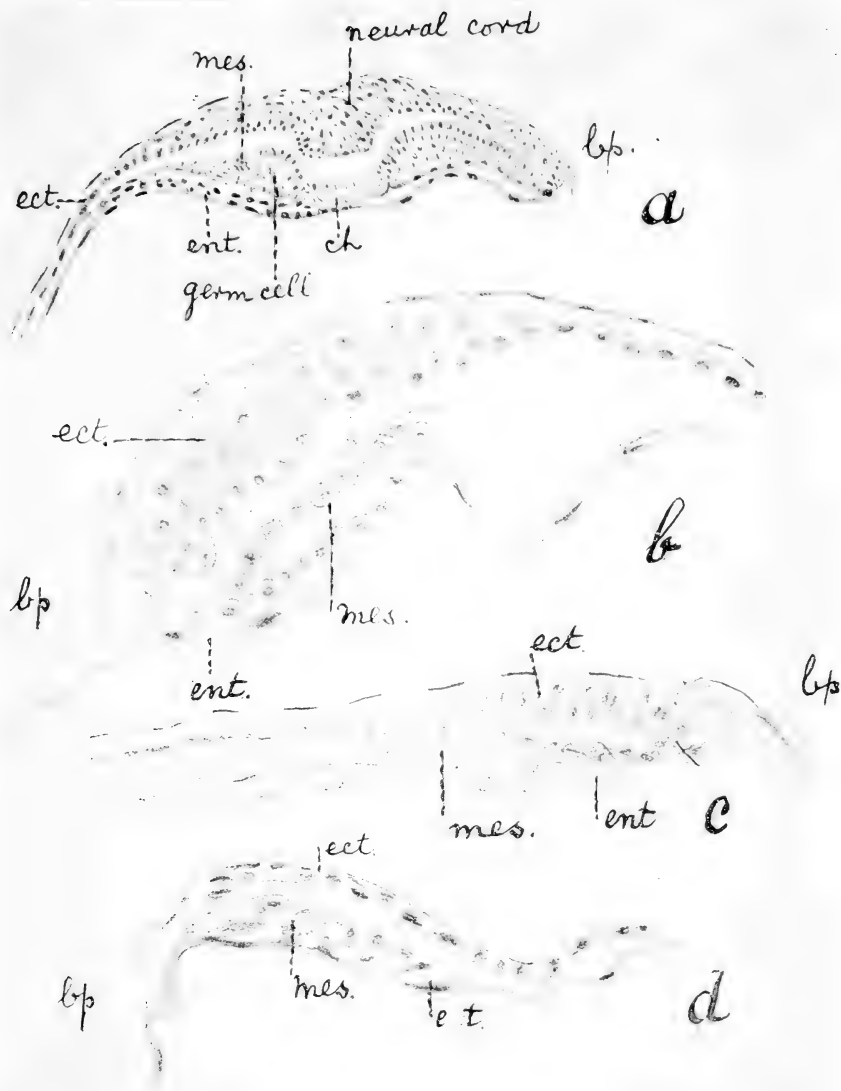 neural cord
mes.
bp.
ect.
a
ent.
ch
germ cell
ect.
b
bp
mes.
ent.
ect.
bp
mes.
ent
c
ect.
bp
mes.
e t.
d